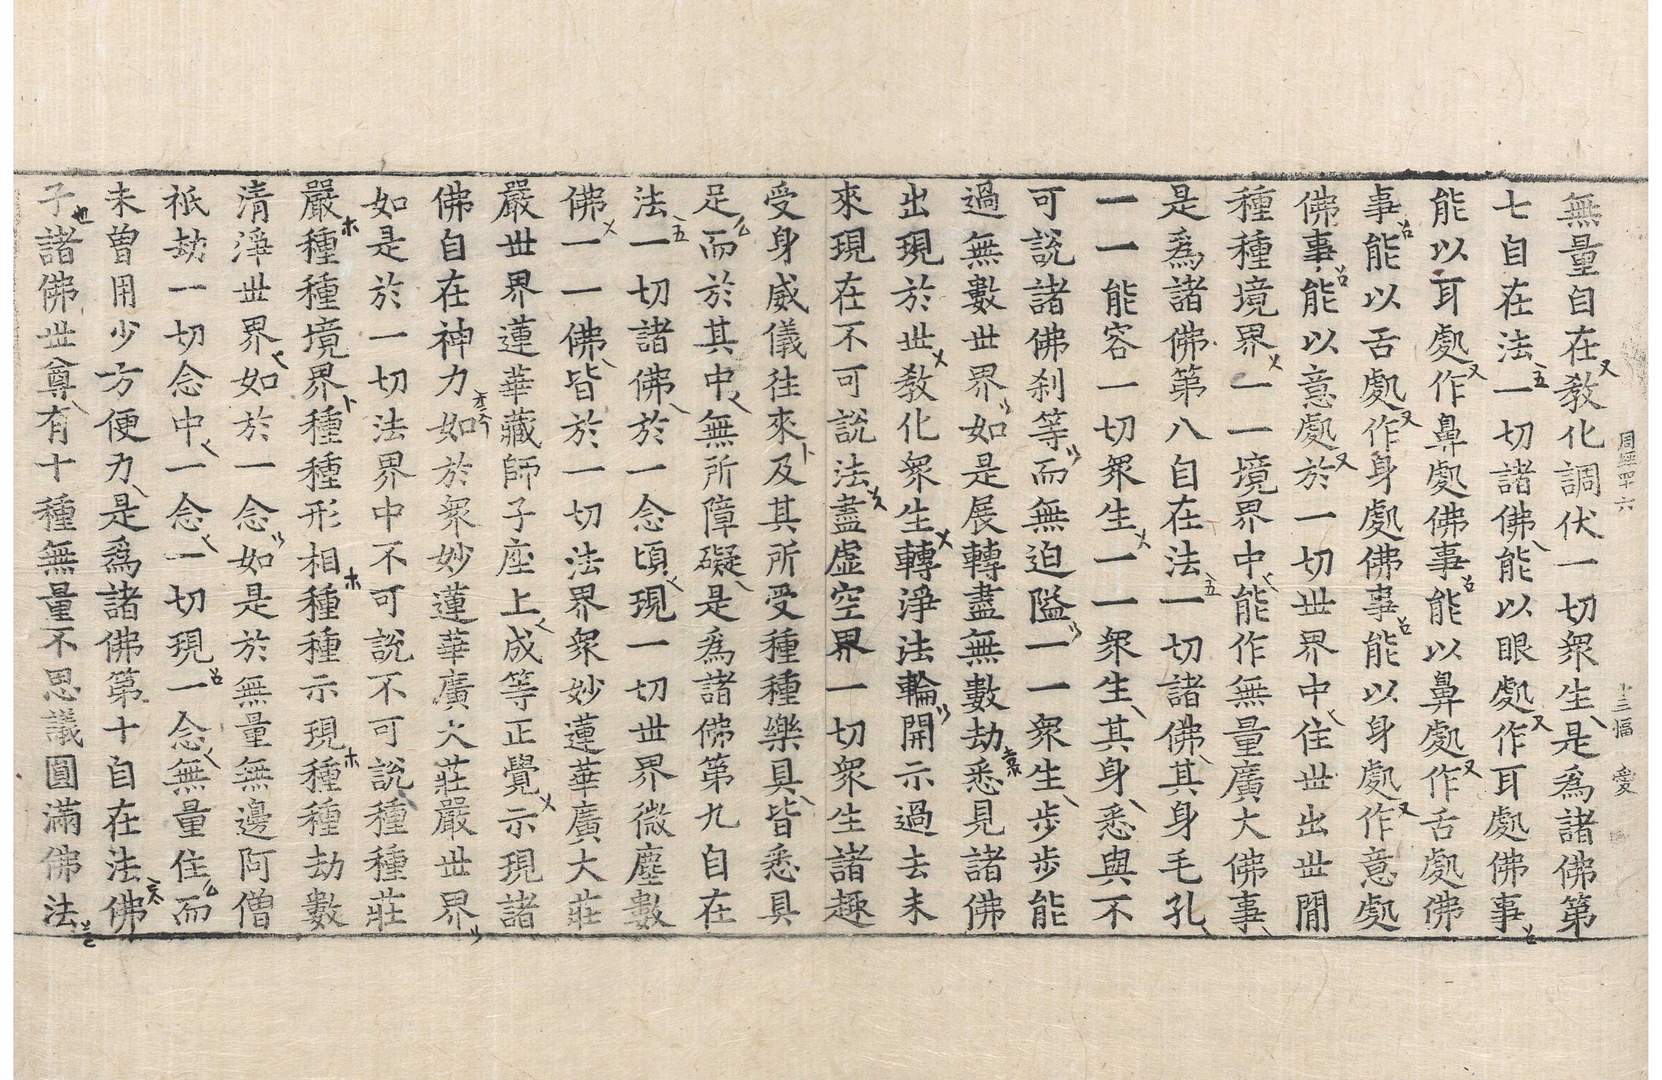 無量自在教化調伏一切衆生是爲諸佛第
周經四十六 十三幅 愛
七自在法一切諸佛能以眼處作耳處佛事
能以耳處作鼻處佛事能以鼻處作舌處佛
事能以舌處作身處佛事能以身處作意處
佛事能以意處於一切世界中住世出世閒
種種境界一一境界中能作無量廣大佛事
是爲諸佛第八自在法一切諸佛其身毛孔
一一能容一切衆生一一衆生其身悉與不
可說諸佛刹等而無迫隘一一衆生步步能
過無數世界如是展轉盡無數劫悉見諸佛
出現於世教化衆生轉淨法輪開示過去未
來現在不可說法盡虛空界一切衆生諸趣
受身威儀往來及其所受種種樂具皆悉具
足而於其中無所障礙是爲諸佛第九自在
法一切諸佛於一念頃現一切世界微塵數
佛一一佛皆於一切法界衆妙蓮華廣大莊
嚴世界蓮華藏師子座上成等正覺示現諸
佛自在神力如於衆妙蓮華廣大莊嚴世界
如是於一切法界中不可說不可說種種莊
嚴種種境界種種形相種種示現種種劫數
清淨世界如於一念如是於無量無邊阿僧
祇劫一切念中一念一切現一念無量住而
未曾用少方便力是爲諸佛第十自在法佛
子諸佛世尊有十種無量不思議圓滿佛法